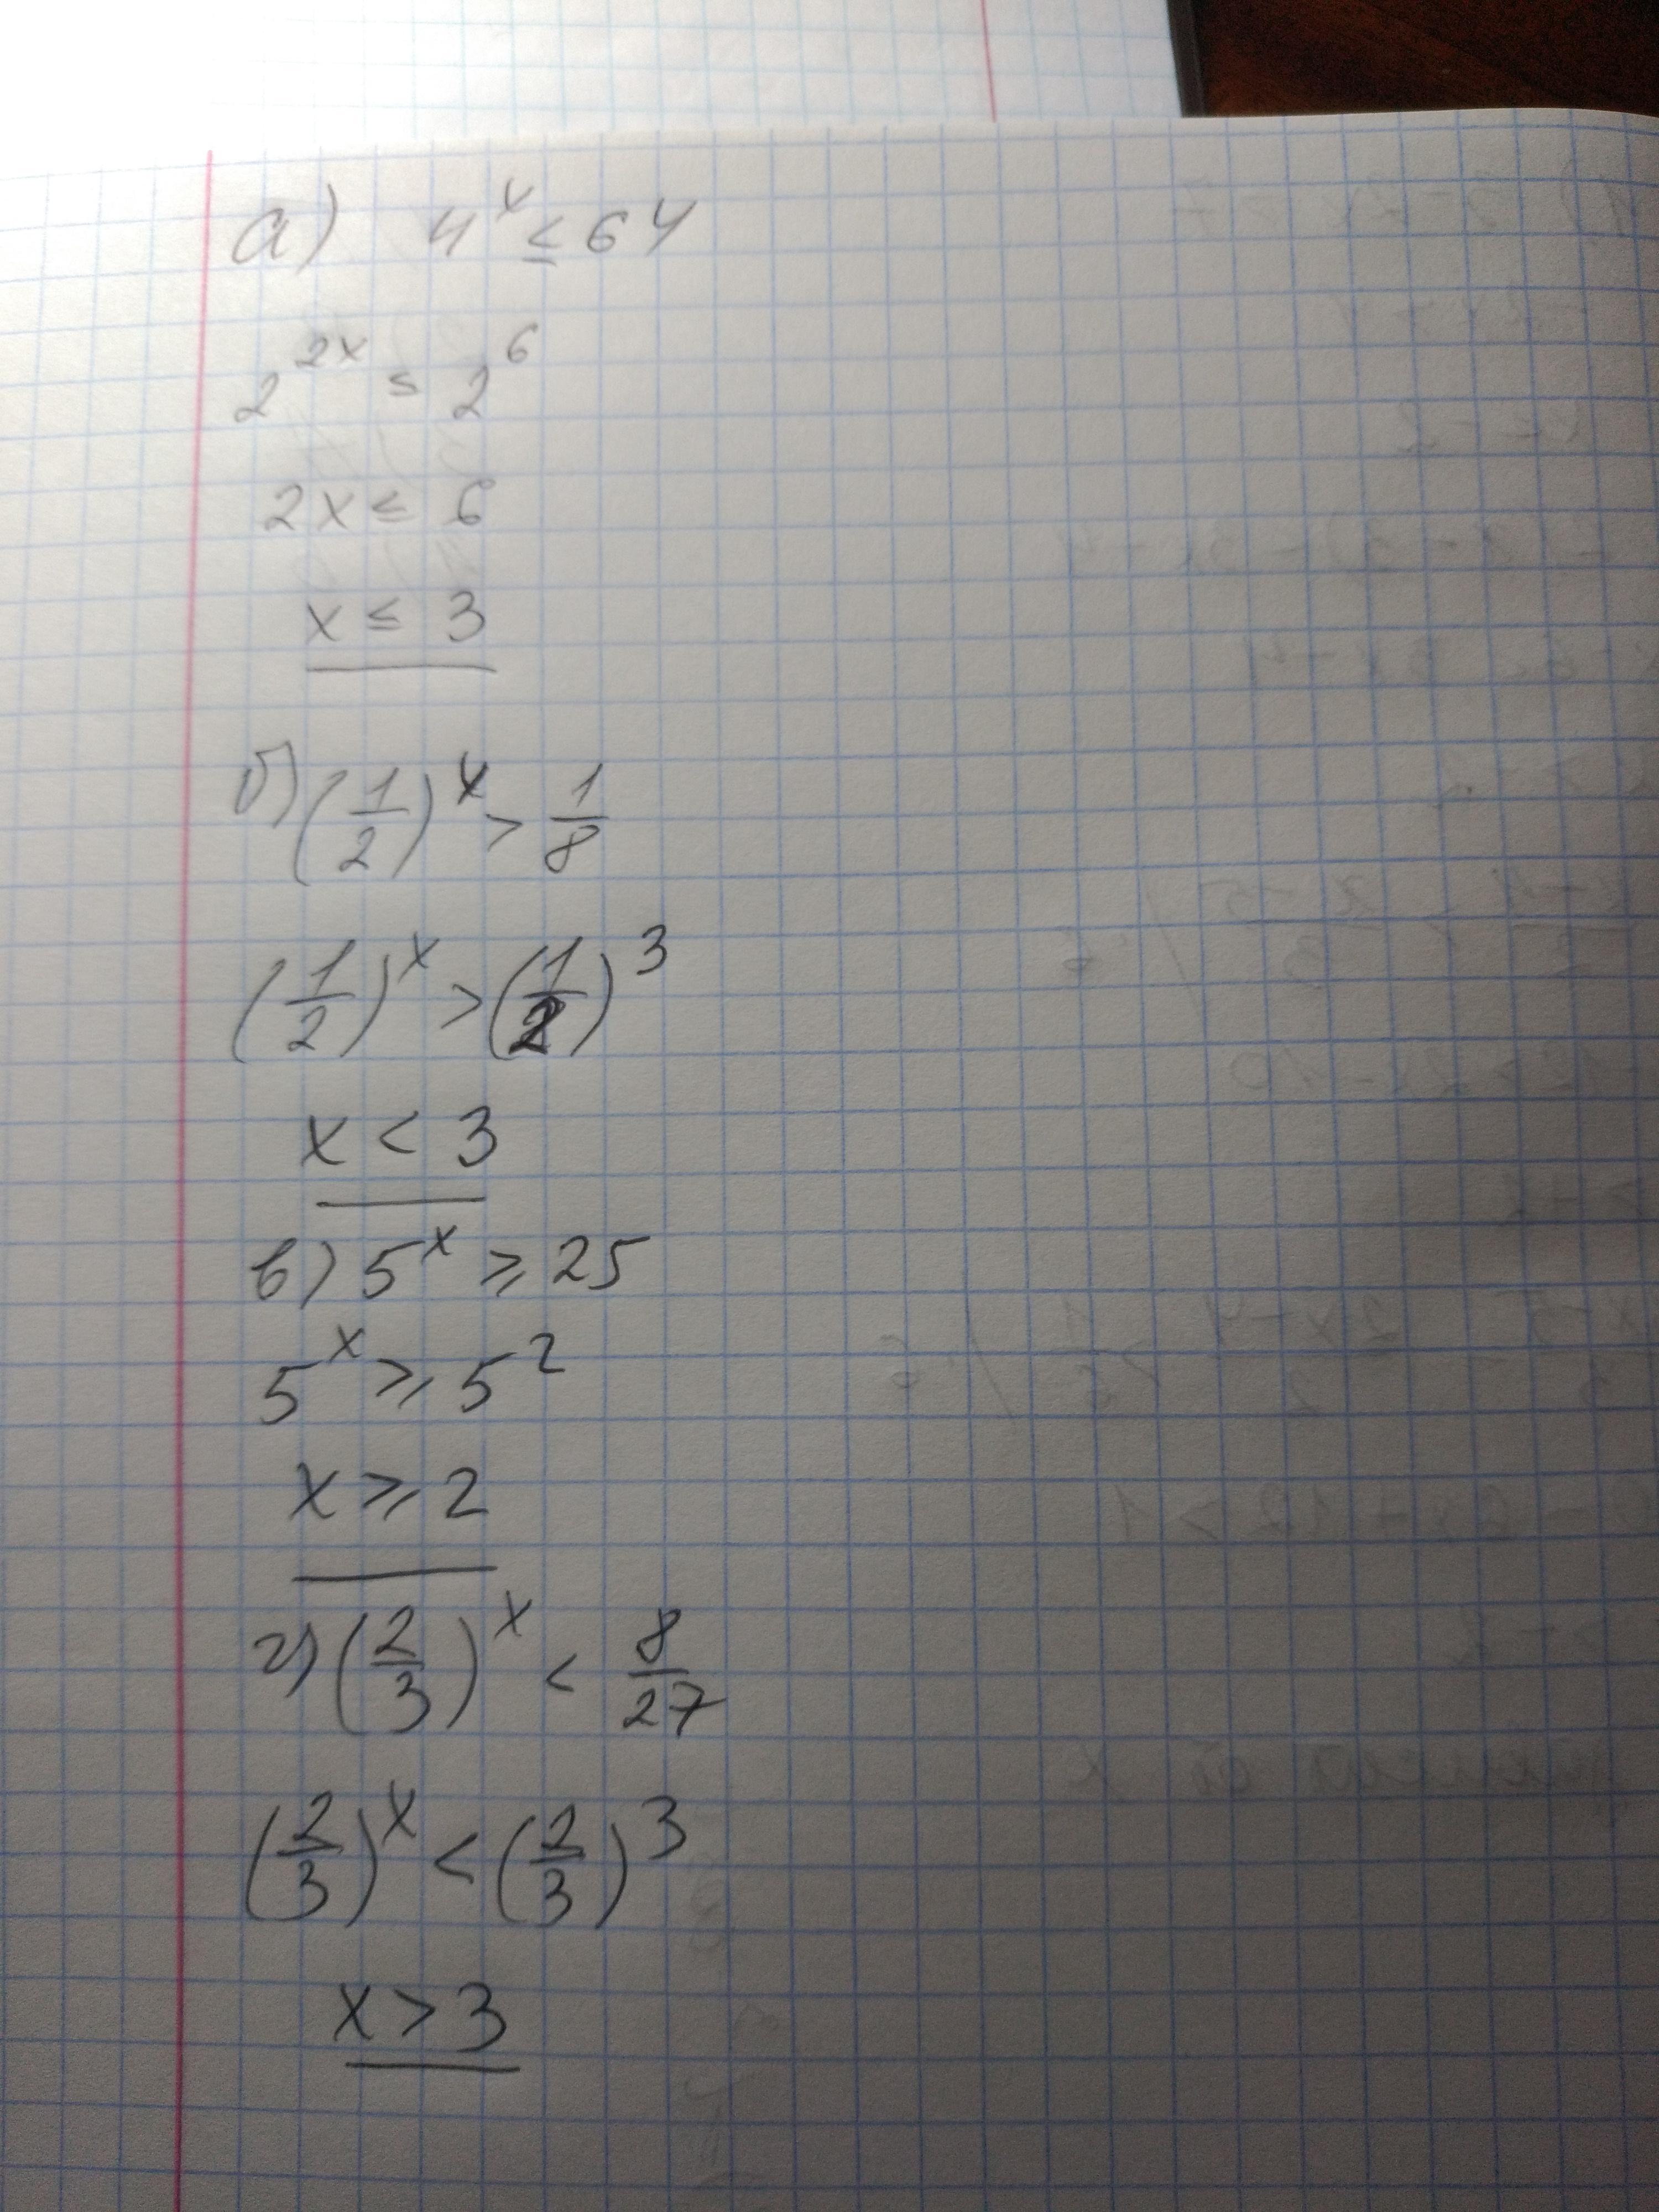 а) 4^x ≤ 64
2^2x ≤ 2^6
2x ≤ 6
x ≤ 3
б) (1/2)^x > 1/8
(1/2)^x > (1/2)^3
x < 3
в) 5^x ≥ 25
5^x ≥ 5^2
x ≥ 2
г) (2/3)^x < 8/27
(2/3)^x < (2/3)^3
x > 3